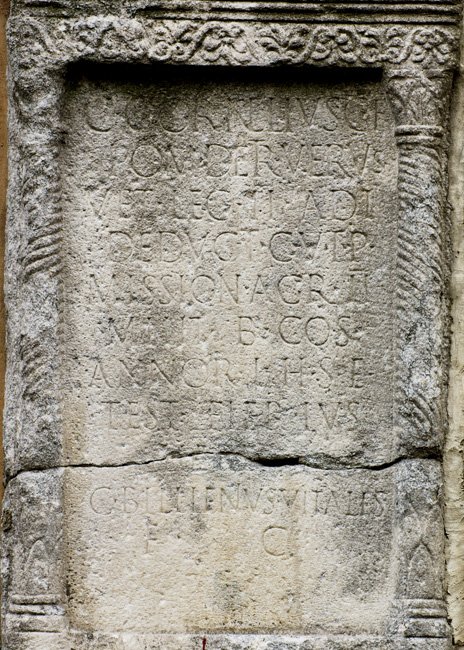 C·CORNELIVS C F
POM DERT VERVS
VET LEG II ADI
DEDVCT C V T P
MISSION·AGR·II
MILIT B·COS·
ANNOR·L·H·S·E·
TEST FIER IVS
C·BILLIENVS VITALIS
F C